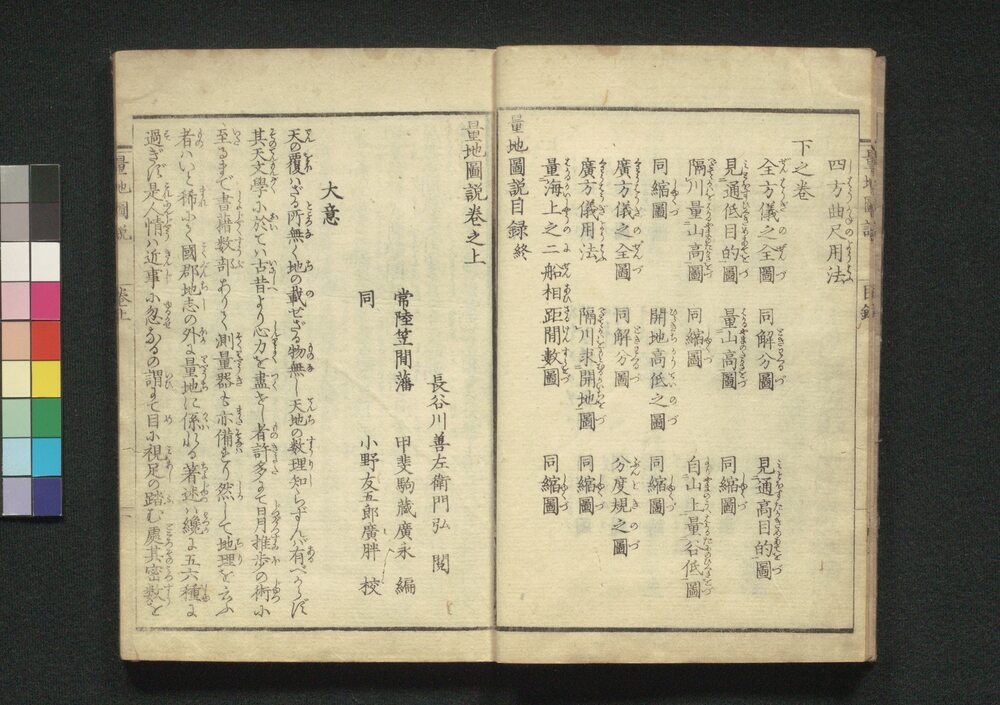 四方曲尺用法
下之卷
全方儀之全圖 同解分圖 見通高目的圖
見通低目的圖 量山高圖 同縮圖
隔川量山高圖 同縮圖 自山上量谷低圖
同縮圖 開地高低之圖 同縮圖
廣方儀之全圖 同解分圖 分度規之圖
廣方儀用法 隔川求開地圖 同縮圖
量海上之二船相距間數圖 同縮圖
量地圖說目録終
量地圖說卷之上
長谷川善左衛門弘 閲
常陸笠間藩 甲斐駒藏廣永 編
同 小野友五郎廣胖 校
大意
天の覆ハざる所無く地の載せざる物無し天地の数理知らずんバ有べからず
其天文學に於てハ古昔より心力を盡せし者許多にて日月推歩の術に
至るまで書籍数部ありて測量器も亦備れり然して地理を云ふ
者ハいと稀にて國郡地志の外に量地に係れる著述ハ纔に五六種に
過ぎず是人情ハ近事に忽なるの謂にて目に視足の踏む處其密数を
量地圖說 卷之上